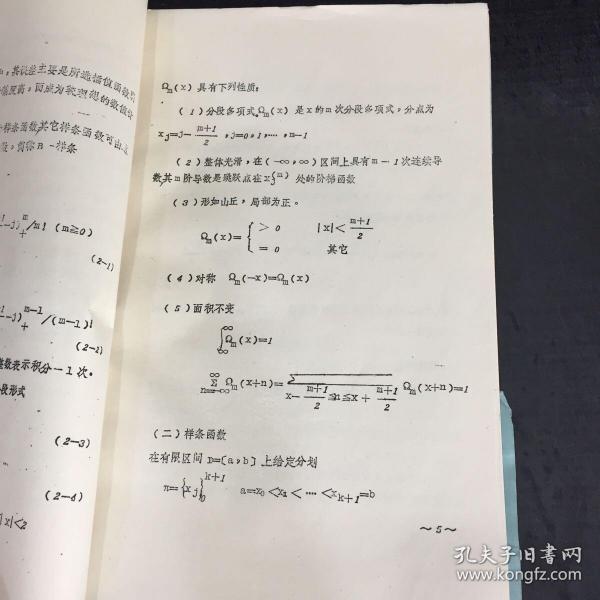 其误差主要是所选插值函数
而成为较理想的数值分
样条函数其它样条函数可由
B-样条
-j)₊^m/m! (m≧0)
(2-1)
-j)₊^{m-1}/(m-1)!
(2-2)
数表示积分-1次。
段形式
(2-3)
(2-4)
|x|<2
Ωm(x)具有下列性质:
(1)分段多项式Ωm(x)是x的m次分段多项式,分点为
xj=j-(m+1)/2,j=0,1,…,m+1
(2)整体光滑,在(-∞,∞)区间上具有m-1次连续导
数其m阶导数是跳跃点在xj^(m)处的阶梯函数
(3)形如山丘,局部为正。
Ωm(x)={ >0 |x|<(m+1)/2
=0 其它
(4)对称 Ωm(-x)=Ωm(x)
(5)面积不变
∫_∞^∞ Ωm(x)=1
Σ_{n=-∞}^{∞} Ωm(x+n)=Σ_{x-(m+1)/2≦n≦x+(m+1)/2} Ωm(x+n)=1
(二)样条函数
在有限区间D=[a,b]上给定分划
π={xj}_0^{k+1} a=x0<x1<…<x_{k+1}=b
~5~
孔夫子旧书网
www.kongfz.com